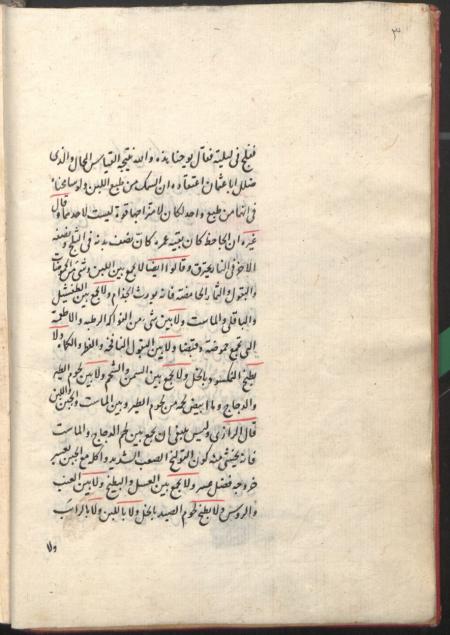 ٣
ففلج فى ليلته فقال يوحنا هذه والله نتيجة القياس المحال والذى
ضلل الاعثمان اعتقاده ان السمك من طبع اللبن ولو سامحناه
فى انهما من طبع واحد لكان لامتزاجهما قوة ليست لاحدهما وقال
غيره ان الجاحظ كان بقية عمره كان نصف بدنه فى الثلج ونصفه
الاخر فى النار يحترق وقالوا ايضا لا يجمع بين اللبن وشئ من الحموضات
والبقول والثمار الحامضة فانه يورث الجذام ولا يجمع بين الطفشيل
والباقلى والماست ولا بين شئ من الفواكه الرطبة والاطعمة
التى تجمع حموضة وقبضا ولا بين البقول النافخة والفطر والكماة ولا
يطبخ بالخل ولا يجمع بين السمن والشحم ولا بين لحوم الطير
والدجاج وما ابيض لحمه من لحوم الطير وبين الماست والجبن واللبن
قال الرازى وليس ينبغى ان يجمع بين لحم الدجاج والماست
فانه يخشى منه كون القولنج الصعب الشديد واكله مع الجبن يعسر
خروجه فضل عسر ولا يجمع بين العسل والبطيخ ولا بين العنب
والروس ولا يطبخ لحوم الصيد بالخل ولا باللبن ولا بالرائب
ولا